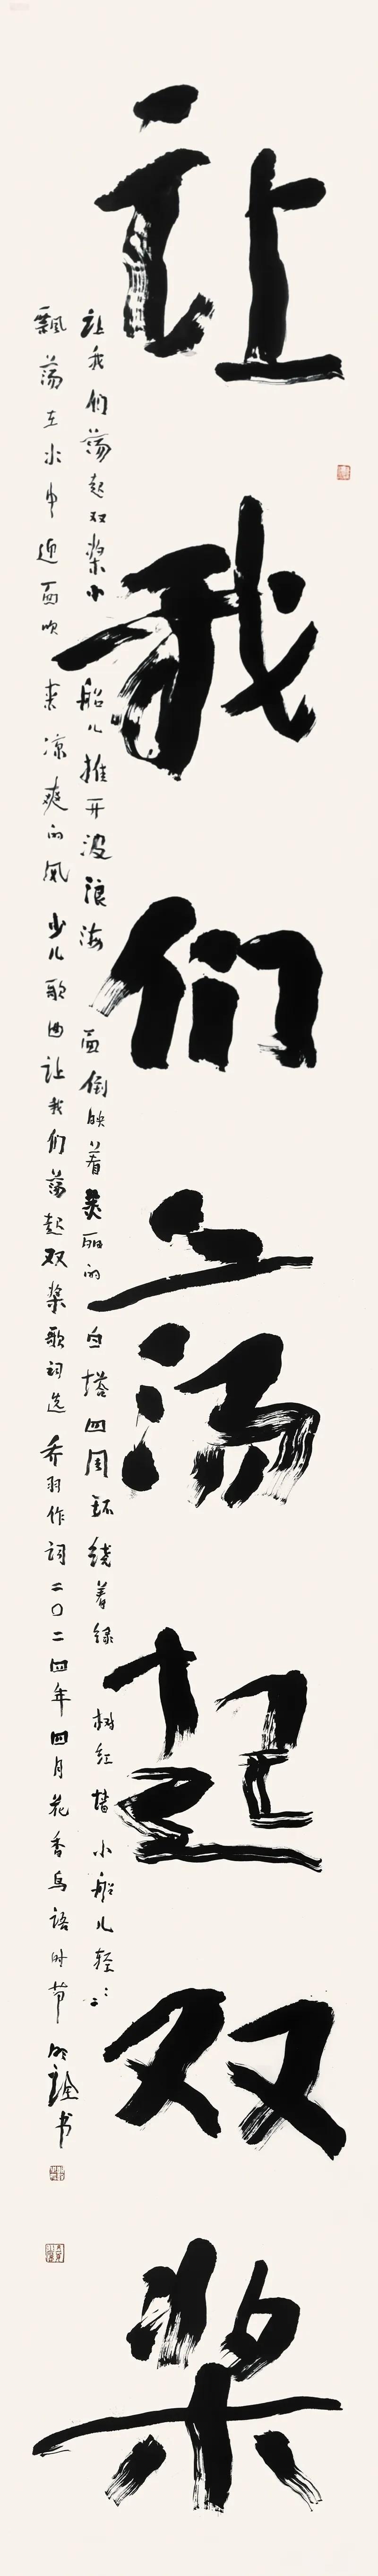 让我们荡起双桨
让我们荡起双桨小船儿推开波浪海面倒映着美丽的白塔四周环绕着绿树红墙小船儿轻轻
飘荡在水中迎面吹来凉爽的风 少儿歌曲让我们荡起双桨歌词选 乔羽作词二〇二四年四月花香鸟语时节 书